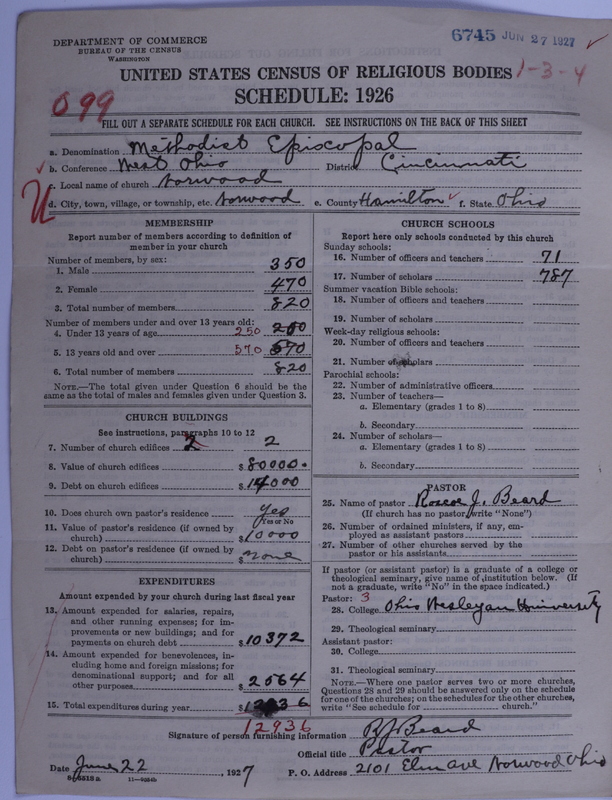 DEPARTMENT OF COMMERCE
BUREAU OF THE CENSUS
WASHINGTON
6745 JUN 27 1927
UNITED STATES CENSUS OF RELIGIOUS BODIES 1-3-4
SCHEDULE: 1926
099
FILL OUT A SEPARATE SCHEDULE FOR EACH CHURCH. SEE INSTRUCTIONS ON THE BACK OF THIS SHEET
a. Denomination Methodist Episcopal
b. Conference West Ohio District Cincinnati
c. Local name of church Norwood
d. City, town, village, or township, etc. Norwood e. County Hamilton f. State Ohio
MEMBERSHIP
Report number of members according to definition of
member in your church
Number of members, by sex:
1. Male 350
2. Female 470
3. Total number of members 820
Number of members under and over 13 years old:
4. Under 13 years of age 250
5. 13 years old and over 570 570
6. Total number of members 820
NOTE.—The total given under Question 6 should be
the same as the total of males and females given under Question 3.
CHURCH BUILDINGS
See instructions, paragraphs 10 to 12
7. Number of church edifices 2 2
8. Value of church edifices $ 80000.
9. Debt on church edifices $ 14000
10. Does church own pastor's residence Yes
(Yes or No
11. Value of pastor's residence (if owned by
church) $ 10000
12. Debt on pastor's residence (if owned by
church) $ None
EXPENDITURES
Amount expended by your church during last fiscal year
13. Amount expended for salaries, repairs,
and other running expenses; for im-
provements or new buildings; and for
payments on church debt $ 10372
14. Amount expended for benevolences, in-
cluding home and foreign missions; for
denominational support; and for all
other purposes $ 2564
15. Total expenditures during year $ 12936
12936
CHURCH SCHOOLS
Report here only schools conducted by this church
Sunday schools:
16. Number of officers and teachers 71
17. Number of scholars 787
Summer vacation Bible schools:
18. Number of officers and teachers
19. Number of scholars
Week-day religious schools:
20. Number of officers and teachers
21. Number of scholars
Parochial schools:
22. Number of administrative officers
23. Number of teachers—
a. Elementary (grades 1 to 8)
b. Secondary
24. Number of scholars—
a. Elementary (grades 1 to 8)
b. Secondary
PASTOR
25. Name of pastor Roscoe J. Beard
(If church has no pastor, write "None")
26. Number of ordained ministers, if any, em-
ployed as assistant pastors
27. Number of other churches served by the
pastor or his assistants
If pastor (or assistant pastor) is a graduate of a college or
theological seminary, give name of institution below. (If
not a graduate, write "No" in the space indicated.)
Pastor: 3
28. College Ohio Wesleyan University
29. Theological seminary
Assistant pastor:
30. College
31. Theological seminary
NOTE.—Where one pastor serves two or more churches,
Questions 28 and 29 should be answered only on the schedule
for one of the churches; on the schedules for the other churches,
write "See schedule for church."
Signature of person furnishing information R J Beard
Official title Pastor
Date June 22, 1927 P. O. Address 2101 Elm Ave Norwood Ohio